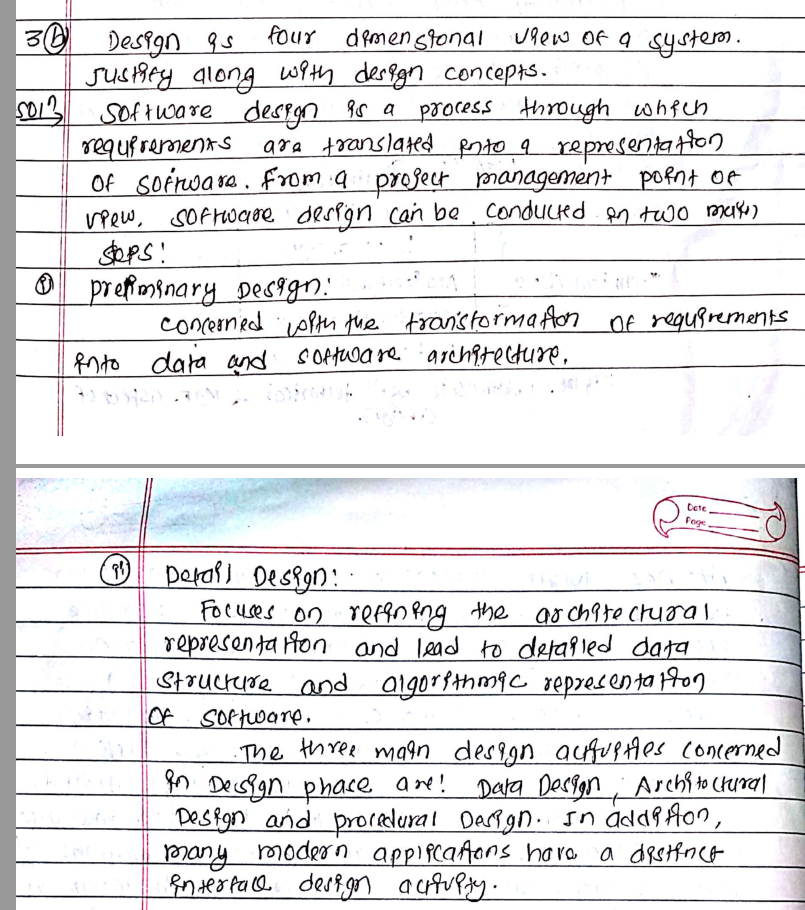 3(b) Design is four dimensional view of a system.
Justify along with design concepts.
Soln Software design is a process through which
requirements are translated into a representation
of software. From a project management point of
view, software design can be conducted in two main
steps:
(i) Preliminary Design:
Concerned with the transformation of requirements
into data and software architecture.
Date
Page
(ii) Detail Design:
Focuses on refining the architectural
representation and lead to detailed data
structure and algorithmic representation
of software.
The three main design activities concerned
in Design phase are: Data Design, Architectural
Design and procedural Design. In addition,
many modern applications have a distinct
interface design activity.